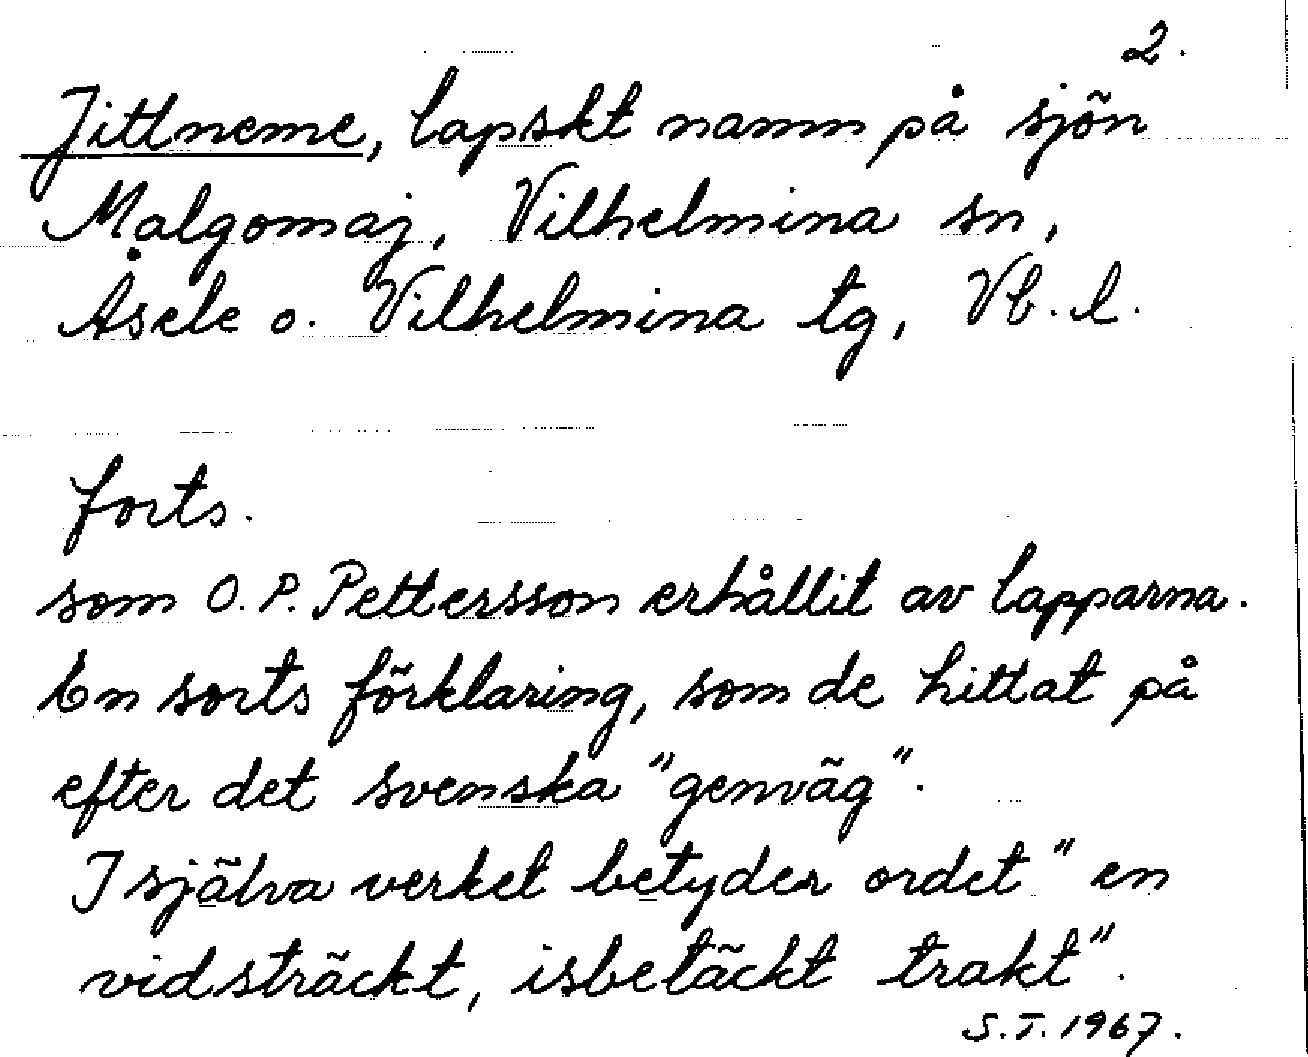 2.
Jittneme, lapskt namn på sjön
Malgomaj, Vilhelmina sn,
Åsele o. Vilhelmina tg, Vb. l.
forts.
som O. P. Pettersson erhållit av lapparna.
En sorts förklaring, som de hittat på
efter det svenska "genväg".
I själva verket betyder ordet "en
vidsträckt, isbetäckt trakt".
S.T. 1967.